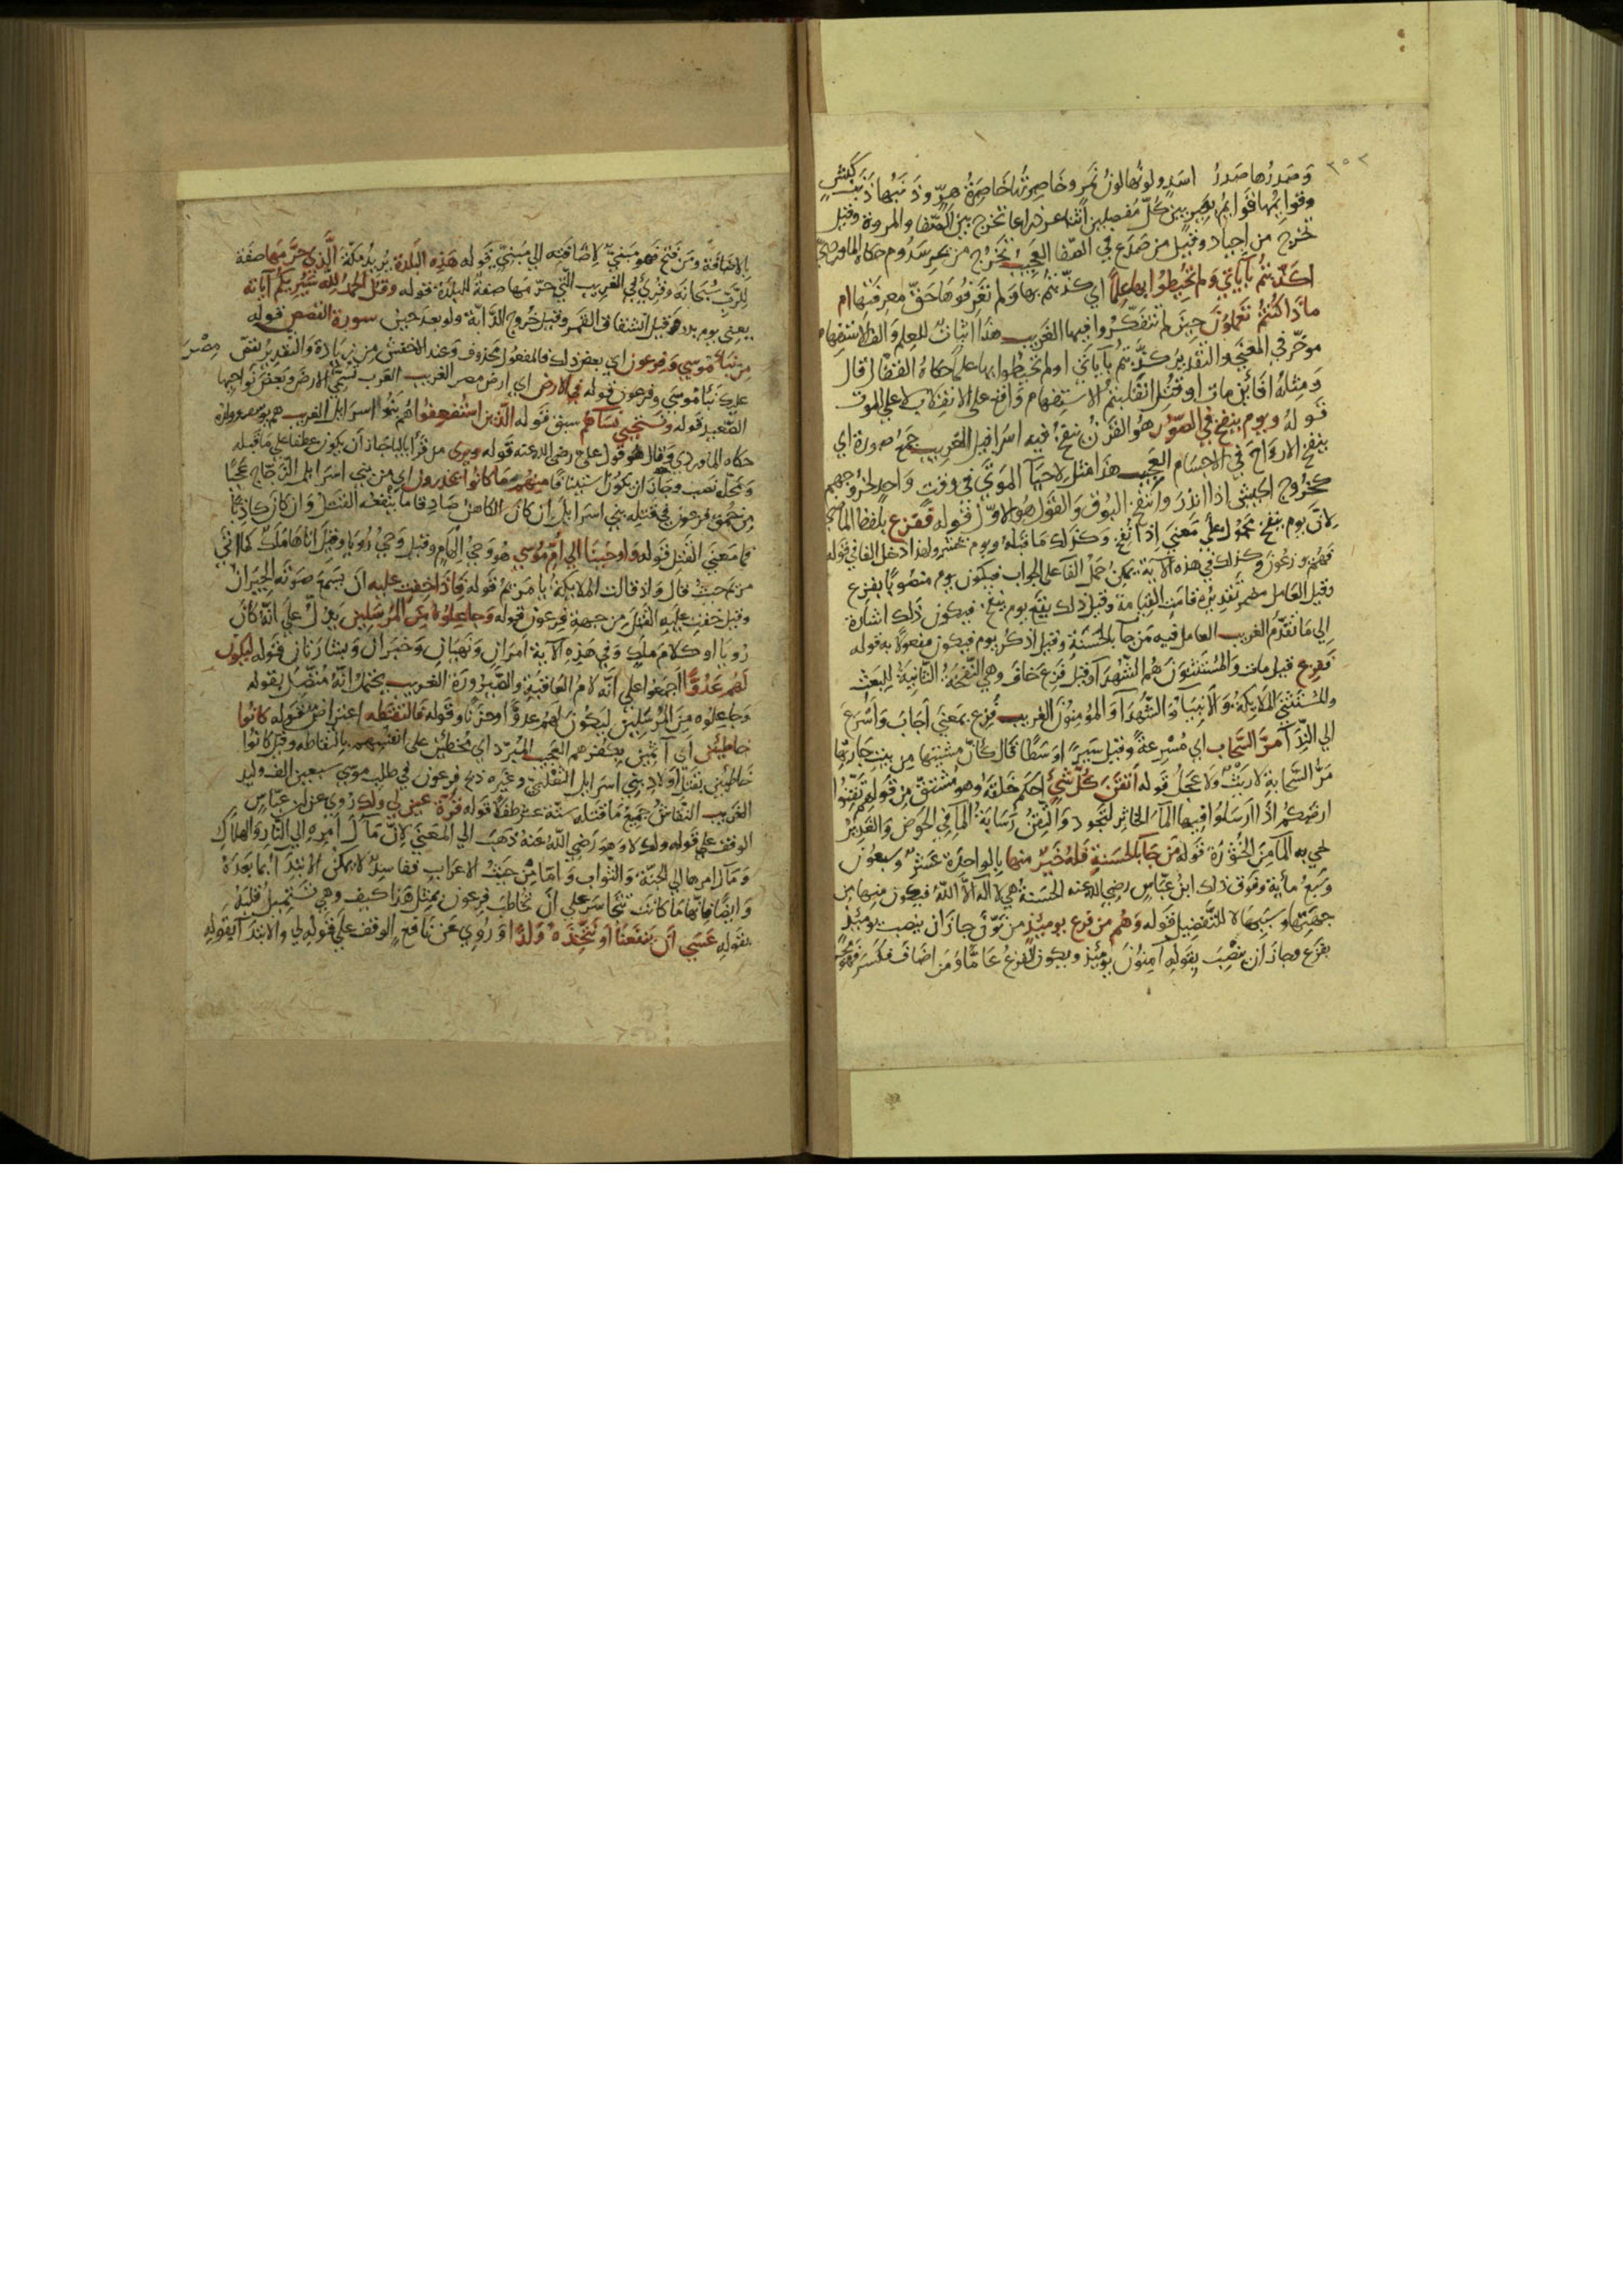 ٢٥٢
وصدرها صدر اسد ولونها لون نمر وخاصرتها خاصرة هر وذنبها ذنب كبش
وقوايمها قوايم بعير بين كل مفصلين اثنا عشر ذراعا تخرج بين الصفا والمروة وقيل
تخرج من اجياد وقيل من صدع في الصفا العجيب تخرج من بحر سدوم حكاه الماوردي
اكذبتم بآياتي ولم تحيطوا بها علما اي كذبتم بها ولم تعرفوها حق معرفتها ام
ماذا كنتم تعملون حين لم تتفكروا فيها الغريب هذا اثبات للعلم والف الاستفهام
موخر في المعني والتقدير كذبتم بآياتي اولم تحيطوا بها علما حكاه القفال قال
ومثله افائن مات او قتل انقلبتم الاستفهام واقع على الانقلاب لا علي الموت
قوله ويوم ينفخ في الصور هو القرن ينفخ فيه اسرافيل الغريب جمع صورة اي
ينفخ الارواح في الاجسام العجيب هذا مثل لاحيآ الموتي في وقت واحد لخروجهم
كخروج الجيش اذا انذر وانفخ البوق والقول هو الاول قوله ففزع بلفظ الماضي
لان يوم ينفخ محمول علي معني اذا نفخ وكذلك ما قبله ويوم نحشر ولهذا ادخل الفا في قوله
فهم يوزعون وكذلك في هذه الآية يمكن حمل الفا على الجواب فيكون يوم منصوبا بفزع
وقيل العامل مضمر تقديره قامت القيامة وقيل ذلك يقع يوم ينفخ فيكون ذلك اشارة
الي ما تقدم الغريب العامل فيه من جآ بالحسنة وقيل اذكر يوم فيكون مفعولا به قوله
ففزع قيل مات والمستثنون هم الشهدآ وقيل فزع خاف وهي النفخة الثانية للبعث
والمستثني الملايكة والانبيآ والشهدآ والمؤمنون الغريب فزع بمعني اجاب واسرع
الي الندآ مر السحاب اي مسرعة وقيل سيرا اوسطا قال كان مشيتها من بيت جارتها
مر السحابة لا ريث ولا عجل قوله اتقن كل شيء احكم خلقه وهو مشتق من قولهم تقنوا
ارضكم اذا ارسلوا فيها المآ الخاثر لتجود والتقن رسابة المآ في الحوض والغدير
يجي به المآ من الخثورة قوله من جآ بالحسنة فله خير منها بالواحدة عشر وسبعون
وسبع مأية وفوق ذلك ابن عباس رضي الله عنه الحسنة هي لا اله الا الله فيكون منها من
جهتها وسببها لا للتفضيل قوله وهم من فزع يومئذ من نون جاز ان ينصب يومئذ
بفزع وجاز ان ينصب بقوله آمنون يومئذ ويكون الفزع عاما ومن اضاف فكسر فهو مجرور
بالاضافة ومن فتح فهو مبني لاضافته الي مبني قوله هذه البلدة يريد مكة الذي حرمها صفة
للرب سبحانه وقرئ في الغريب التي حرمها صفة للبلدة قوله وقل الحمد لله سيريكم آياته
يعني يوم بدر وقيل انشقاق القمر وقيل خروج الدابة ولو بعد حين سورة القصص قوله
من نبأ موسي وفرعون اي بعض ذلك فالمفعول محذوف وعند الاخفش من زيادة والتقدير نقص
عليك نبأ موسي وفرعون قوله في الارض اي ارض مصر الغريب العرب تسمي الارض وبعض نواحيها مصر
الصعيد قوله ونستحيي نسآهم سبق قوله الذين استضعفوا هم بنوا اسرايل الغريب هم يوسف وولده
حكاه الماوردي وقال هو قول علي رضي الله عنه قوله ويري من قرأ باليا جاز ان يكون عطفا علي ما قبله
ومحله نصب وجاز ان يكون استينافا منهم ما كانوا يحذرون اي من بني اسرايل الزجاج عجبا
من حمق فرعون في قتله بني اسرايل ان كان الكاهن صادقا ما ينفعه القتل وان كان كاذبا
فما معني القتل قوله واوحينا الي ام موسي هو وحي الهام وقيل وحي رويا وقيل اتاها ملك كما اتي
مريم حيث قال واذ قالت الملايكة يا مريم قوله فاذا خفت عليه ان يسمع صوته الجيران
وقيل خفت عليه القتل من جهة فرعون قوله وجاعلوه من المرسلين يدل علي انه كان
رويا او كلام ملك وفي هذه الآية امران ونهيان وخبران وبشارتان قوله ليكون
لهم عدوا اجمعوا علي انه لام العاقبة والصيرورة الغريب يحتمل انه متصل بقوله
وجاعلوه من المرسلين ليكون لهم عدوا وحزنا وقوله فالتقطه اعتراض قوله كانوا
خاطئين اي آثمين بكفرهم العجيب المبرد اي مخطئين على انفسهم بالتقاطه وقيل كانوا
خاطيين بقتل اولاد بني اسرايل الثعلبي وغيره ذبح فرعون في طلب موسي سبعين الف وليد
الغريب النقاش جميع ما قتله ستة عشر طفلا قوله قرة عين لي ولك روي عن ابن عباس
الوقف علي قوله ولك لا وهو رضي الله عنه ذهب الي المعني لان مآل امره الي النار والهلاك
ومآل امرها الي الجنة والثواب واما من حيث الاعراب ففاسد لا يمكن الابتدآ بما بعده
وايضا فانها ما كانت تتجاسر علي ان تخاطب فرعون بمثل هذا كيف وهي تستميل قلبه
بقوله عسي ان ينفعنا او نتخذه ولدا وروي عن نافع الوقف علي قوله لي والابتدآ بقوله